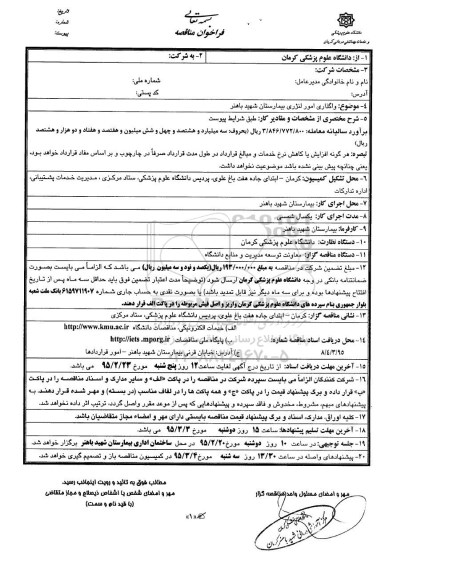 بسمه تعالی
فراخوان مناقصه
تاریخ:
شماره:
پیوست:
دانشگاه علوم پزشکی
و خدمات بهداشتی درمانی کرمان
۱- از: دانشگاه علوم پزشکی کرمان
۲- به شرکت:
۳- مشخصات شرکت:
نام و نام خانوادگی مدیرعامل:
شماره ملی:
آدرس:
کد پستی:
۴- موضوع: واگذاری امور لنژری بیمارستان شهید باهنر
۵- شرح مختصری از مشخصات و مقادیر کار: طبق شرایط پیوست
برآورد سالیانه معامله: ۳/۸۴۶/۷۷۲/۸۰۰ ریال (بحروف: سه میلیارد و هشتصد و چهل و شش میلیون و هفتصد و هفتاد و دو هزار و هشتصد
ریال)
تبصره: هر گونه افزایش یا کاهش نرخ خدمات و مبالغ قرارداد در طول مدت قرارداد صرفاً در چارچوب و بر اساس مفاد قرارداد خواهد بود.
یعنی چنانچه پیش بینی نشده باشد موضوعیت نخواهد داشت.
۶- محل تشکیل کمیسیون: کرمان – ابتدای جاده هفت باغ علوی، پردیس دانشگاه علوم پزشکی، ستاد مرکزی، مدیریت خدمات پشتیبانی،
اداره تدارکات
۷- محل اجرای کار: بیمارستان شهید باهنر
۸- مدت اجرای کار: یکسال شمسی
۹- کارفرما: بیمارستان شهید باهنر
۱۰- دستگاه نظارت: دانشگاه علوم پزشکی کرمان
۱۱- دستگاه مناقصه گزار: معاونت توسعه مدیریت و منابع دانشگاه
۱۲- مبلغ تضمین شرکت در مناقصه به مبلغ ۱۹۳/۰۰۰/۰۰۰ ریال(یکصد و نود و سه میلیون ریال) می باشد که الزاماً می بایست بصورت
ضمانتنامه بانکی در وجه دانشگاه علوم پزشکی کرمان ارسال شود (توضیحاً مدت اعتبار تضمین فوق باید حداقل سه ماه پس از تاریخ
افتتاح پیشنهادها بوده و برای سه ماه دیگر نیز قابل تمدید باشد) یا بصورت نقدی به حساب جاری شماره بانک ملت شعبه
بلوار جمهوری بنام سپرده های دانشگاه علوم پزشکی کرمان واریز و اصل فیش مربوطه را در پاکت الف قرار دهند.
۱۳- نشانی مناقصه گزار: کرمان – ابتدای جاده هفت باغ علوی، پردیس دانشگاه علوم پزشکی، ستاد مرکزی
۱۴- محل دریافت اسناد مناقصه شماره:
۸/۶/۳/۹۵
الف) خدمات الکترونیکی، مناقصات دانشگاه http://www.kmu.ac.ir
ب) پایگاه ملی مناقصات http://iets.mporg.ir
ج) آدرس: خیابان قرنی بیمارستان شهید باهنر – امور قراردادها
۱۵- آخرین مهلت دریافت اسناد: از تاریخ درج آگهی لغایت ساعت ۱۴ روز پنج شنبه مورخ ۹۵/۲/۲۳ می باشد.
۱۶- شرکت کنندگان الزاماً می بایست سپرده شرکت در مناقصه را در پاکت «الف» و سایر مدارک و اسناد مناقصه را در پاکت
«ب» قرار داده و برگ پیشنهاد قیمت را در پاکت «ج» و همه پاکت ها را در لفاف مناسب (در بسته) و مهر شده قرار دهند. به
پیشنهادهای مبهم، مشروط، مخدوش و فاقد سپرده و پیشنهادهایی که پس از موعد مقرر واصل گردد، ترتیب اثر داده نخواهد شد.
۱۷- کلیه اوراق، مدارک، اسناد و برگ پیشنهاد قیمت مناقصه بایستی دارای مهر و امضاء مجاز متقاضیان باشد.
۱۸- آخرین مهلت تسلیم پیشنهادها: ساعت ۱۵ روز دوشنبه مورخ ۹۵/۳/۳ می باشد.
۱۹- جلسه توجیهی: در ساعت ۱۰ روز دوشنبه مورخ ۹۵/۲/۲۰ در محل ساختمان اداری بیمارستان شهید باهنر برگزار خواهد شد.
۲۰- پیشنهادهای واصله در ساعت ۱۳/۳۰ روز سه شنبه مورخ ۹۵/۳/۴ در کمیسیون مناقصه باز و تصمیم گیری خواهد شد.
مهر و امضای مسئول واحد مناقصه گزار
مطالب فوق به تائید و رویت اینجانب رسید.
مهر و امضای شخص یا اشخاص ذیصلاح و مجاز متقاضی
(با قید نام و سمت)